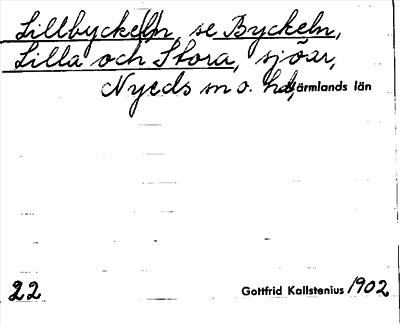 Lillbyckeln, se Byckeln,
Lilla och Stora, sjöar,
Nyeds sn o. hd, Värmlands län
22 Gottfrid Kallstenius 1902